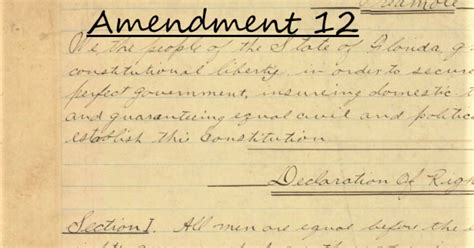 Preamble
Amendment 12
We the people of the State of Florida g
constitutional liberty, in order to secure
perfect government, insureing domestic t
and guaranteeing equal civil and politica
establish this Constitution
Declaration Of Righ
Section I. All men are equal before the